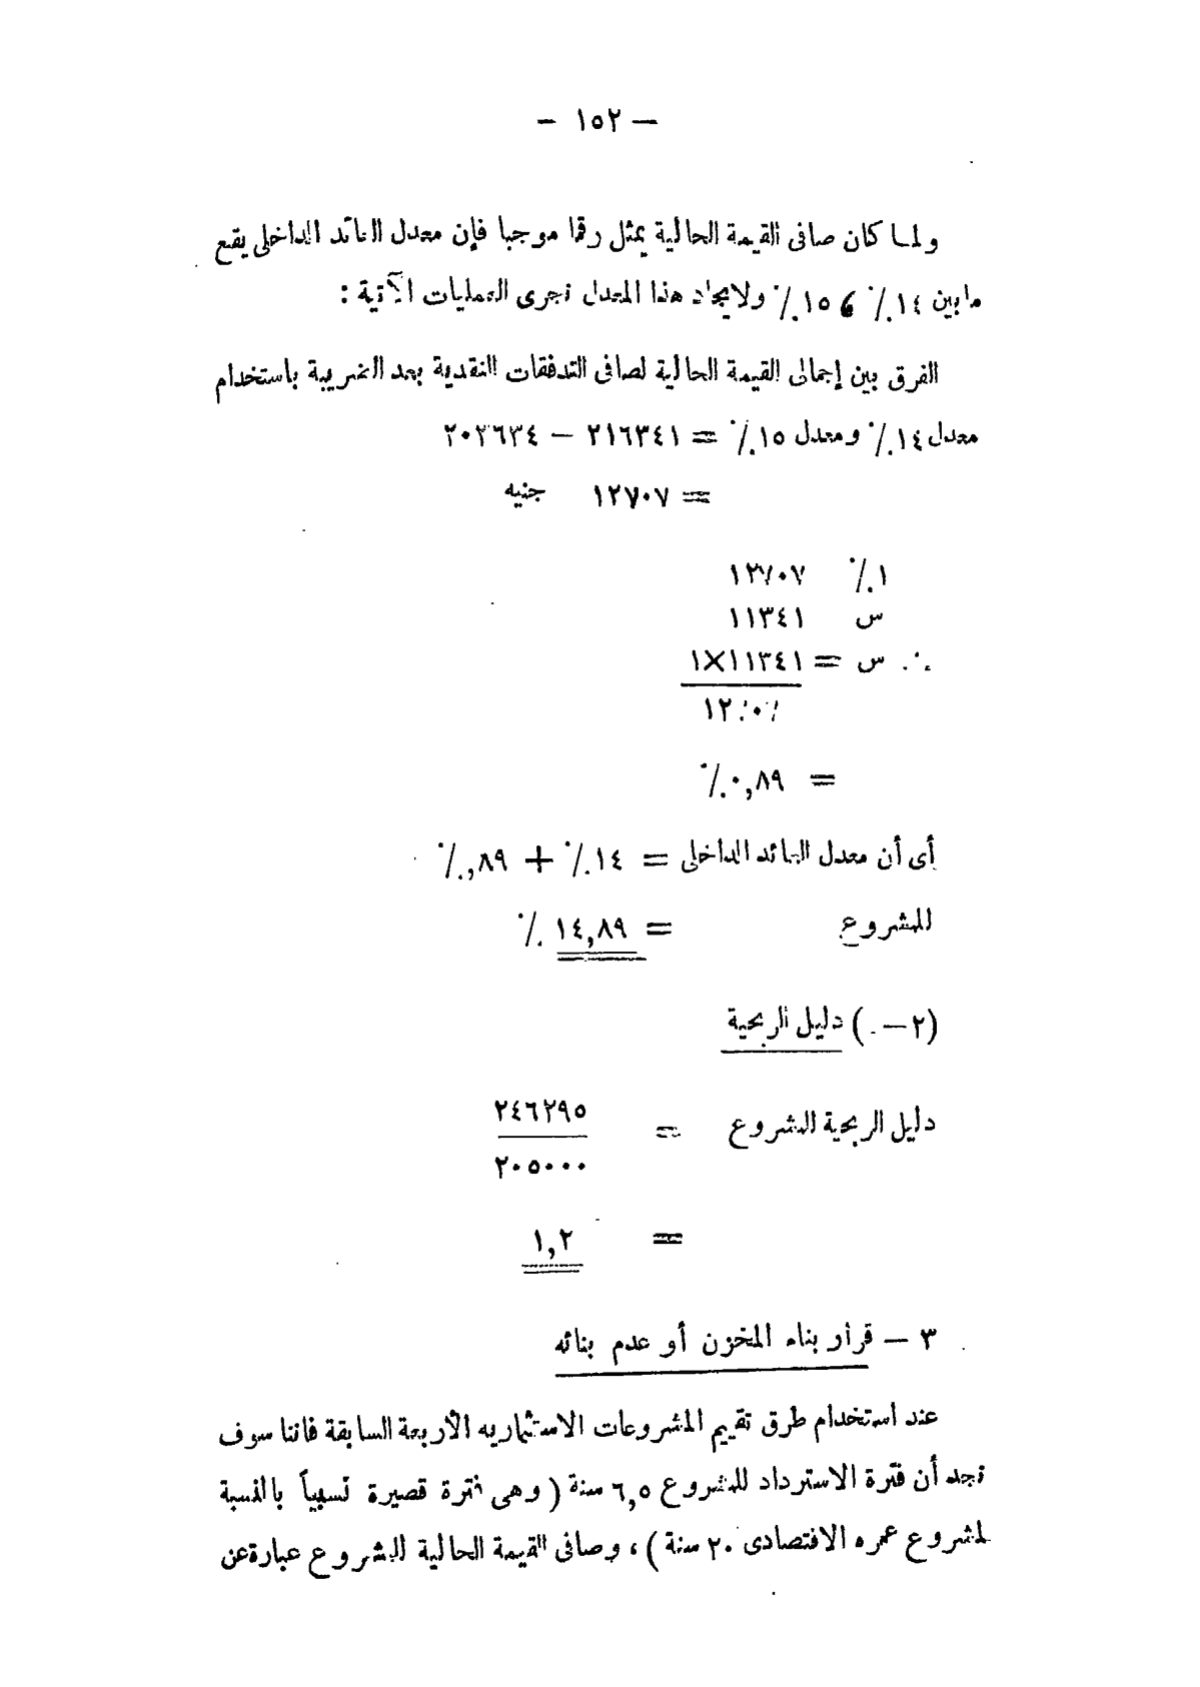 — ١٥٢ —
ولما كان صافى القيمة الحالية يمثل رقما موجبا فإن معدل العائد الداخلى يقع
ما بين ١٤٪ ، ١٥٪ ولايجاد هذا المعدل نجرى العمليات الآتية :
الفرق بين إجمالى القيمة الحالية لصافى التدفقات النقدية بعد الضريبة باستخدام
معدل ١٤٪ ومعدل ١٥٪ = ٢١٦٣٤١ — ٢٠٣٦٣٤
= ١٢٧٠٧ جنيه
١٪ ١٢٧٠٧
س ١١٣٤١
∴ س = ١١٣٤١×١
= ٠,٨٩٪
أى أن معدل العائد الداخلى = ١٤٪ + ٨٩,٪
للمشروع = ١٤,٨٩ ٪
(٢ — ) دليل الربحية
دليل الربحية للمشروع = ٢٤٦٢٩٥
٢٠٥٠٠٠
= ١,٢
٣ — قرار بناء المخزن أو عدم بنائه
عند استخدام طرق تقييم المشروعات الاستثماريه الأربعة السابقة فاننا سوف
نجد أن فترة الاسترداد للمشروع ٦,٥ سنة ( وهى فترة قصيرة نسبياً بالنسبة
لمشروع عمره الاقتصادى ٢٠ سنة ) ، وصافى القيمة الحالية للمشروع عبارة عن